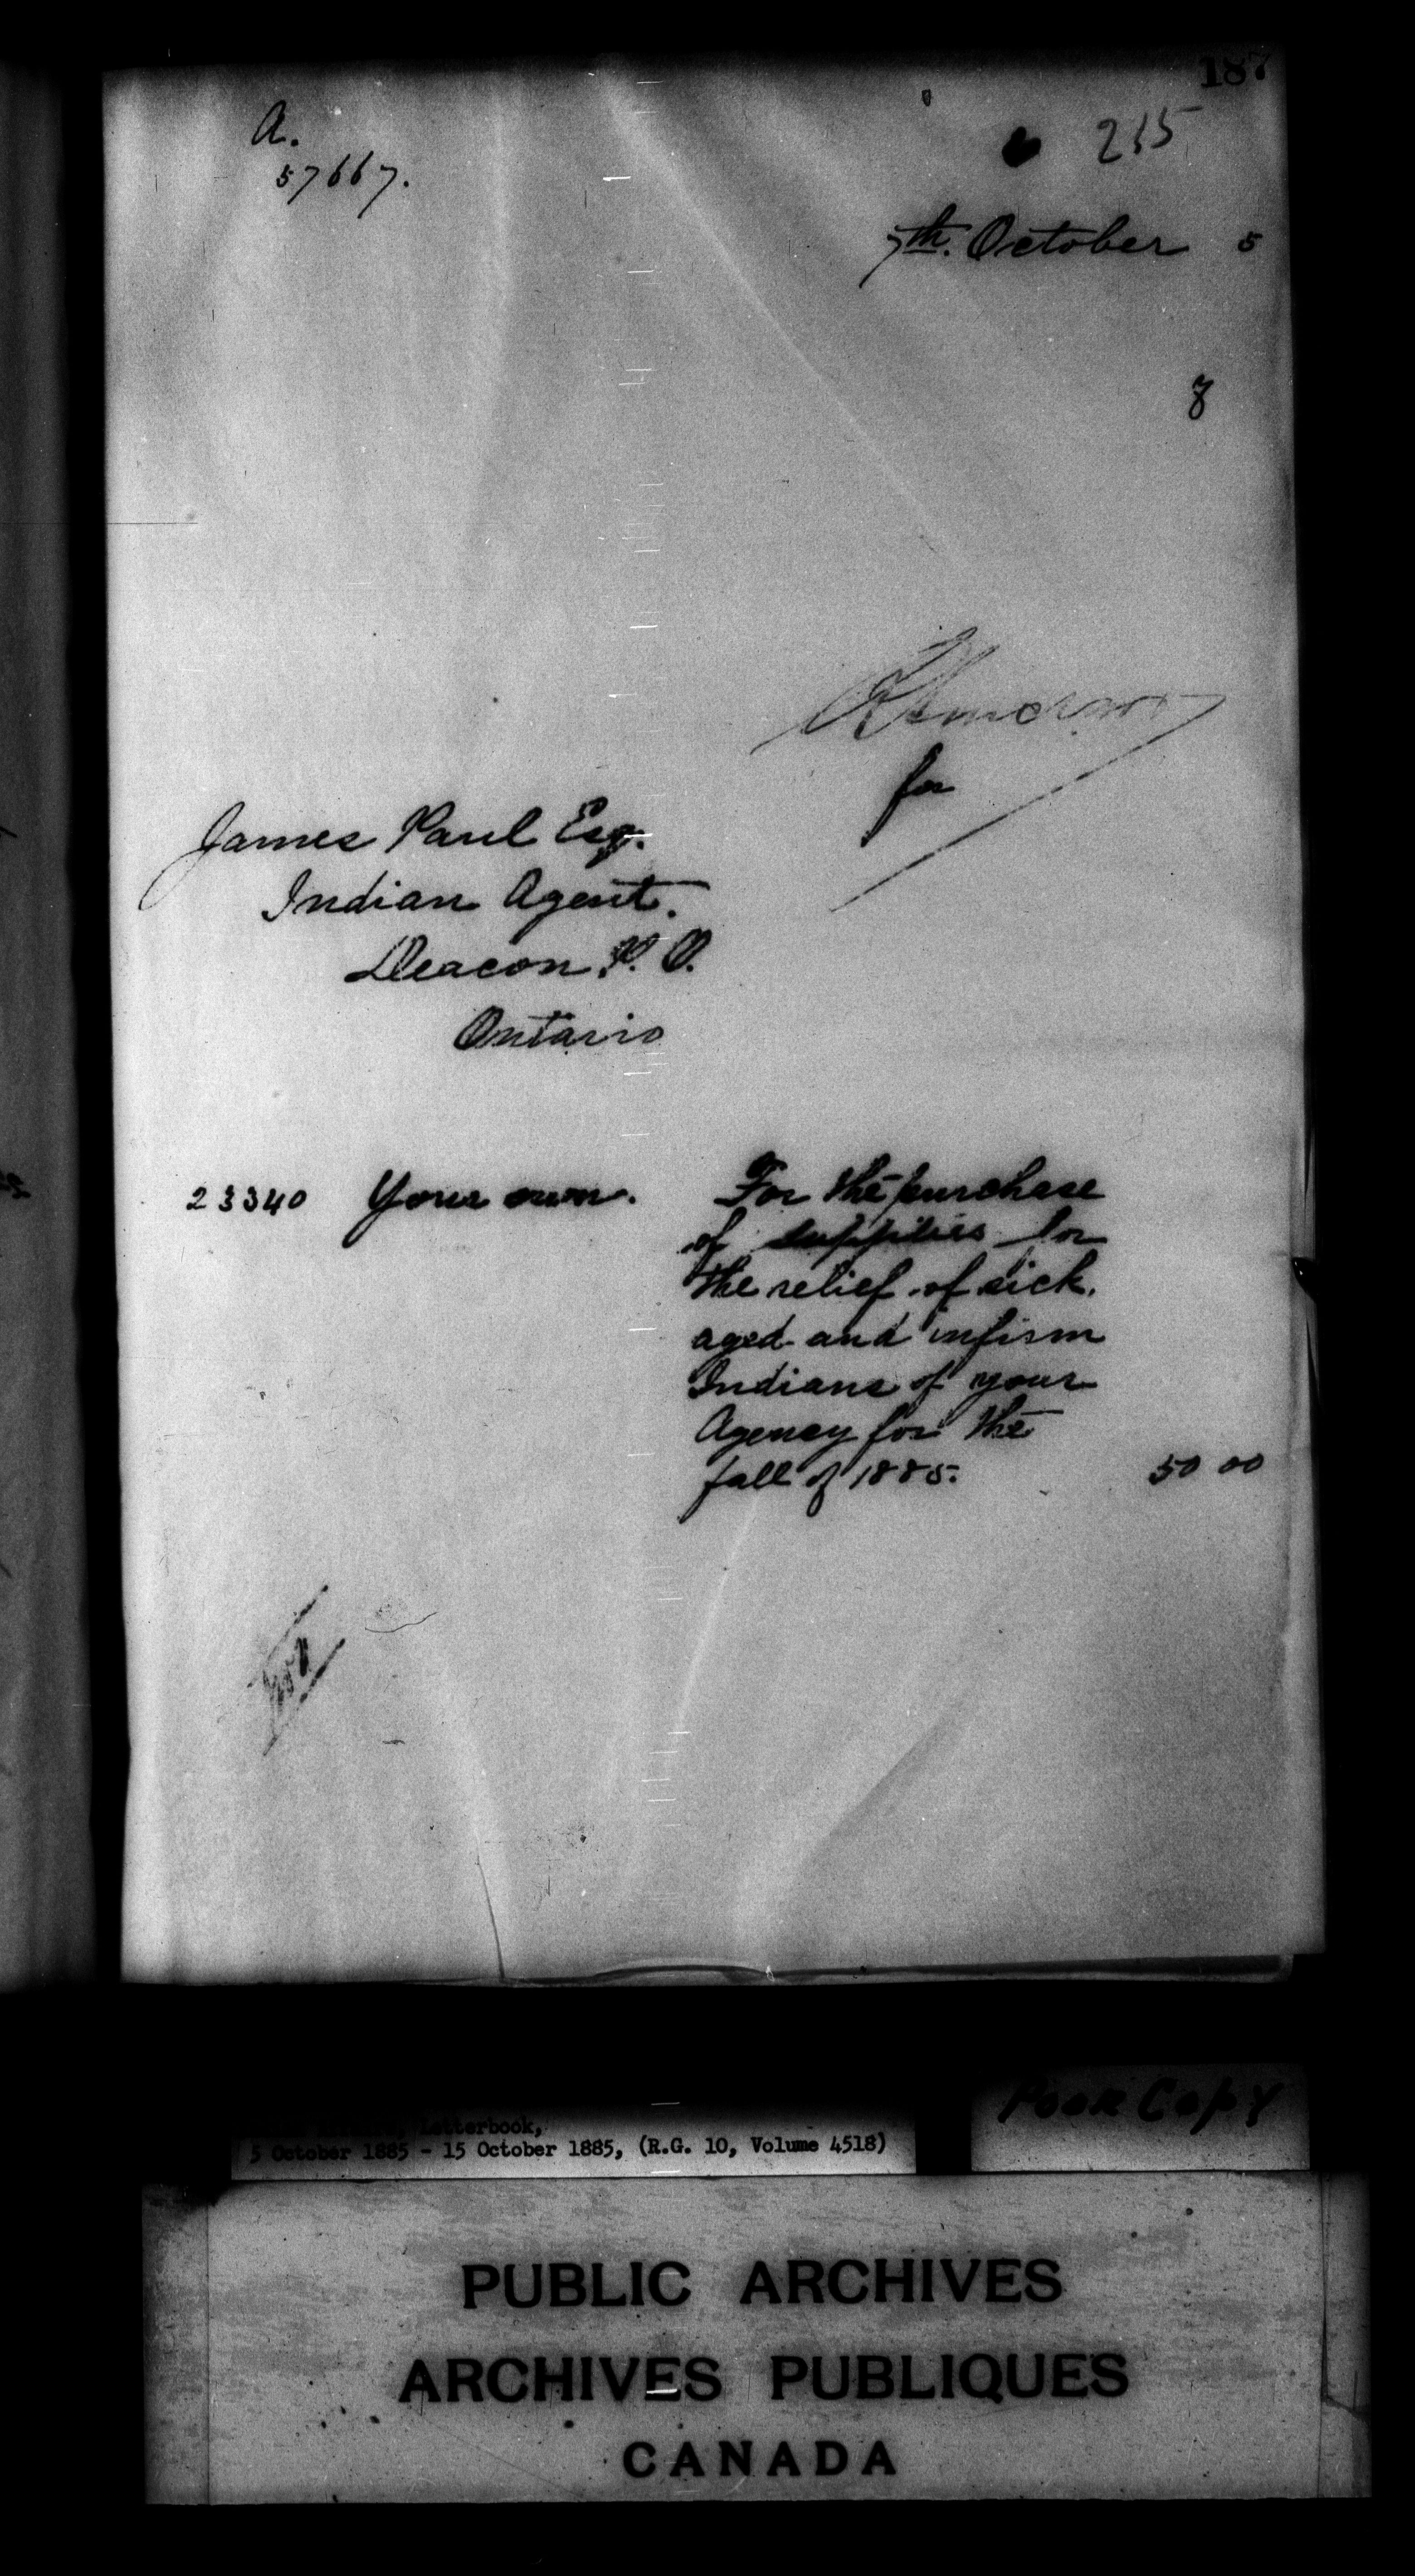 187
215
A.
57667.
7th. October 5
8
for
James Paul Esq.
Indian Agent.
Deacon P. O.
Ontario
23340 Your own. For the purchase
of supplies for
the relief of sick,
aged and infirm
Indians of your
Agency for the
fall of 1885. 50 00
Poor Copy
Letterbook,
5 October 1885 - 15 October 1885, (R.G. 10, Volume 4518)
PUBLIC ARCHIVES
ARCHIVES PUBLIQUES
CANADA